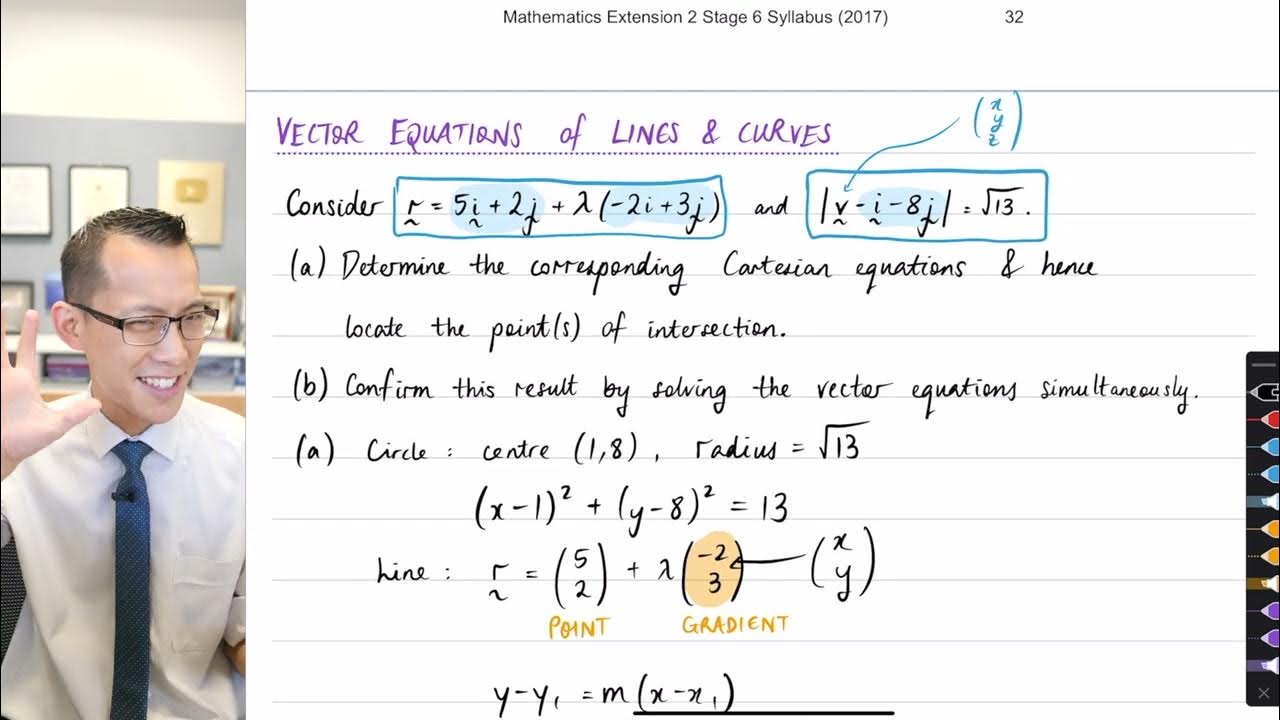 Mathematics Extension 2 Stage 6 Syllabus (2017) 32
VECTOR EQUATIONS of LINES & CURVES
(x y z)
Consider r = 5i + 2j + λ(-2i + 3j) and |v - i - 8j| = √13.
(a) Determine the corresponding Cartesian equations & hence
locate the point(s) of intersection.
(b) Confirm this result by solving the vector equations simultaneously.
(a) Circle : centre (1,8), radius = √13
(x-1)² + (y-8)² = 13
Line : r = (5 2) + λ(-2 3) (x y)
POINT GRADIENT
y-y₁ = m(x-x₁)